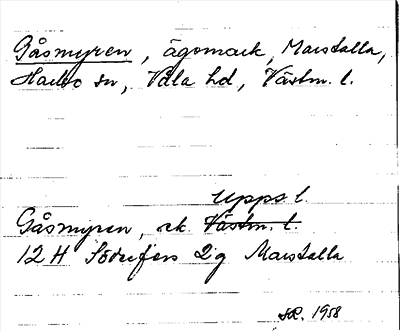 Gåsmyren, ägomark, Marstalla,
Harbo sn, Våla hd, Västm. l.
Upps l.
Gåsmyren, ek. Västm. l.
12 H Söderfors 2g Marstalla
1958